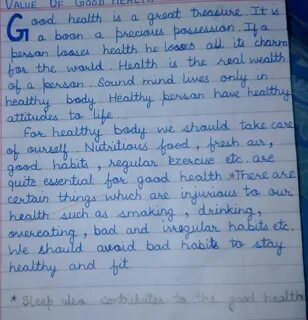 VALUE OF GOOD HEALTH
Good health is a great treasure. It is
a boon a precious possession. If a
person looses health he looses all its charm
for the world. Health is the real wealth
of a person. Sound mind lives only in
healthy body. Healthy person have healthy
attitudes to life.
For healthy body we should take care
of ourself. Nutritious food, fresh air,
good habits, regular exercise etc. are
quite essential for good health. *There are
certain things which are injurious to our
health such as smoking, drinking,
overeating, bad and irregular habits etc.
We should avoid bad habits to stay
healthy and fit.
* Sleep also contributes to the good health